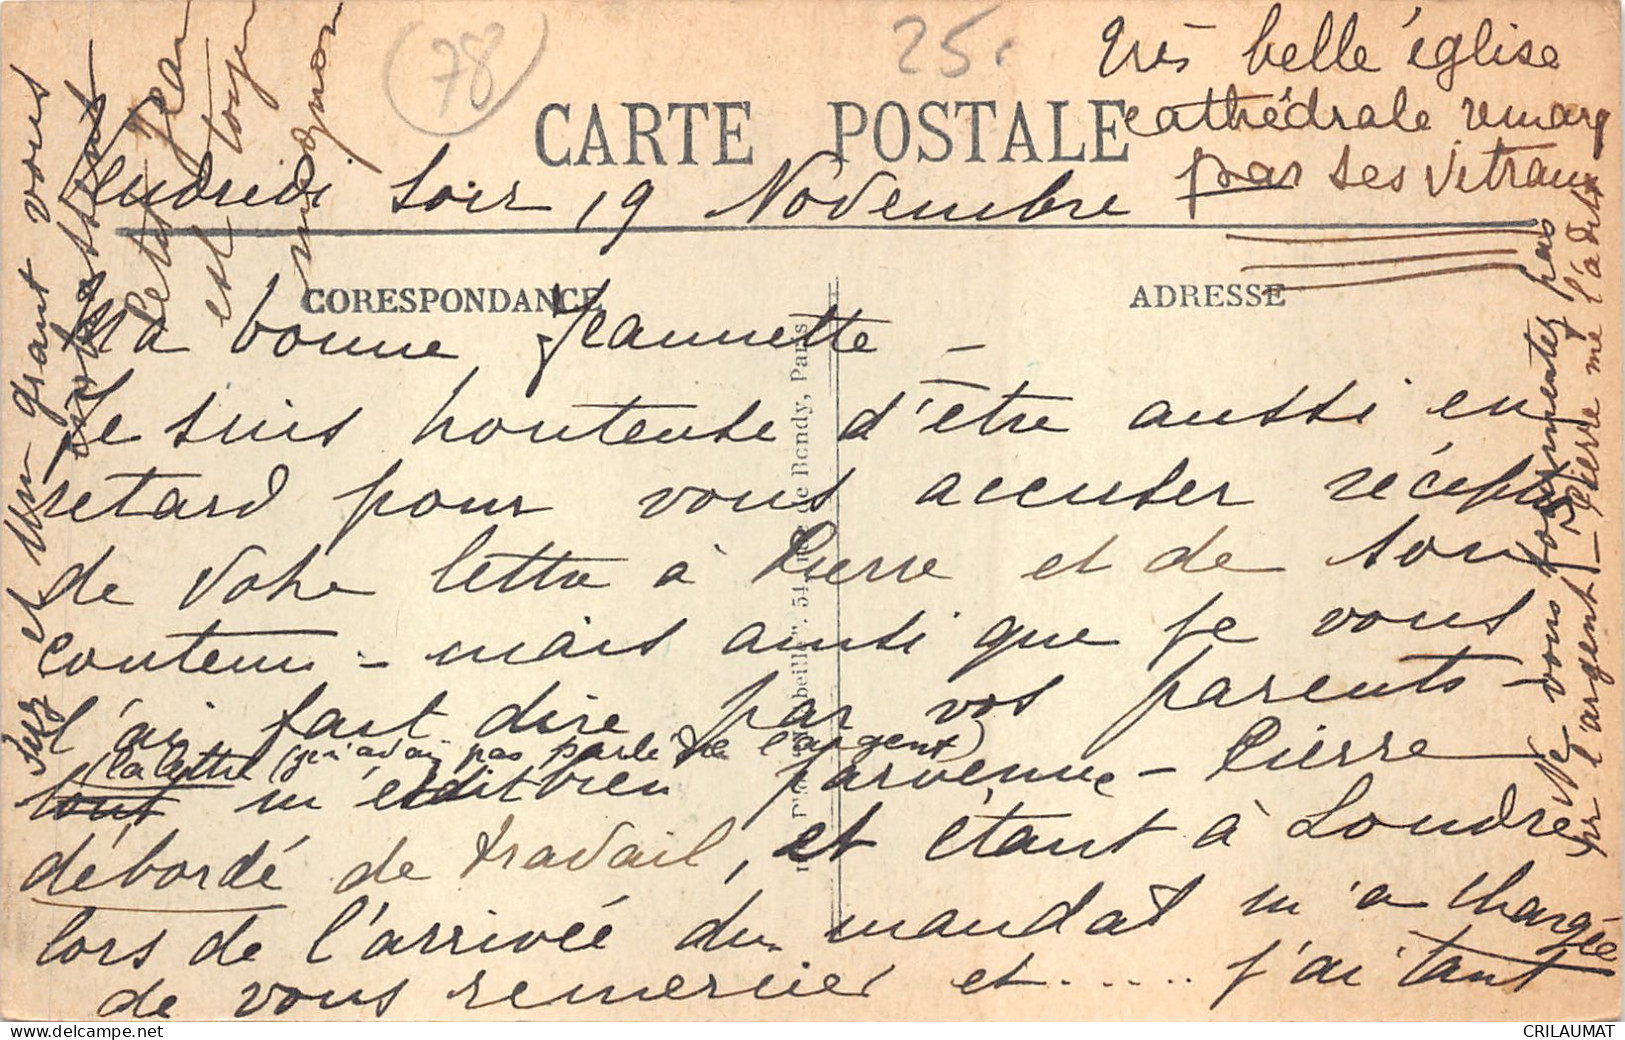 (78)
25.
Très belle église
cathédrale remarq
par ses vitraux
CARTE POSTALE
Vendredi Soir 19 Novembre
CORESPONDANCE
ADRESSE
Ma bonne Jeannette -
Je suis honteuse d'être aussi en
retard pour vous accuser récept
de votre lettre à Pierre et de son
contenu - mais ainsi que je vous
l'ai fait dire par vos parents -
(la lettre (qui n'avait pas parlé de l'argent)
tout m'est dit bien parvenue - Pierre
débordé de travail, et étant à Londre
lors de l'arrivée du mandat m'a chargée
de vous remercier et ..... j'ai tant
Petit Jean
est toujou
mignon
et Un grant vous
Ne vous tourmentez pas
pr l'argent - Pierre me l'a dit
de Bondy, Paris